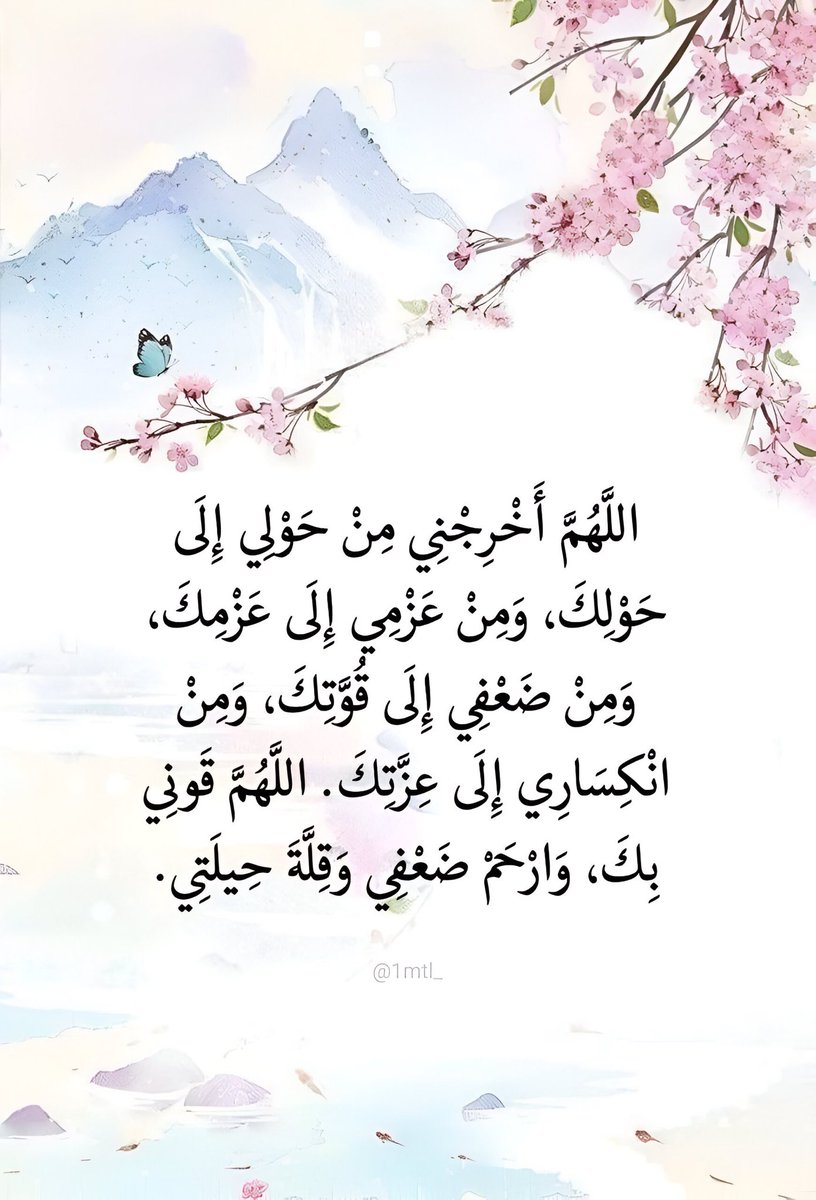 اللَّهُمَّ أَخْرِجْنِي مِنْ حَوْلِي إِلَى
حَوْلِكَ، وَمِنْ عَزْمِي إِلَى عَزْمِكَ،
وَمِنْ ضَعْفِي إِلَى قُوَّتِكَ، وَمِنْ
انْكِسَارِي إِلَى عِزَّتِكَ. اللَّهُمَّ قَونِي
بِكَ، وَارْحَمْ ضَعْفِي وَقِلَّةَ حِيلَتِي.
@1mtl_